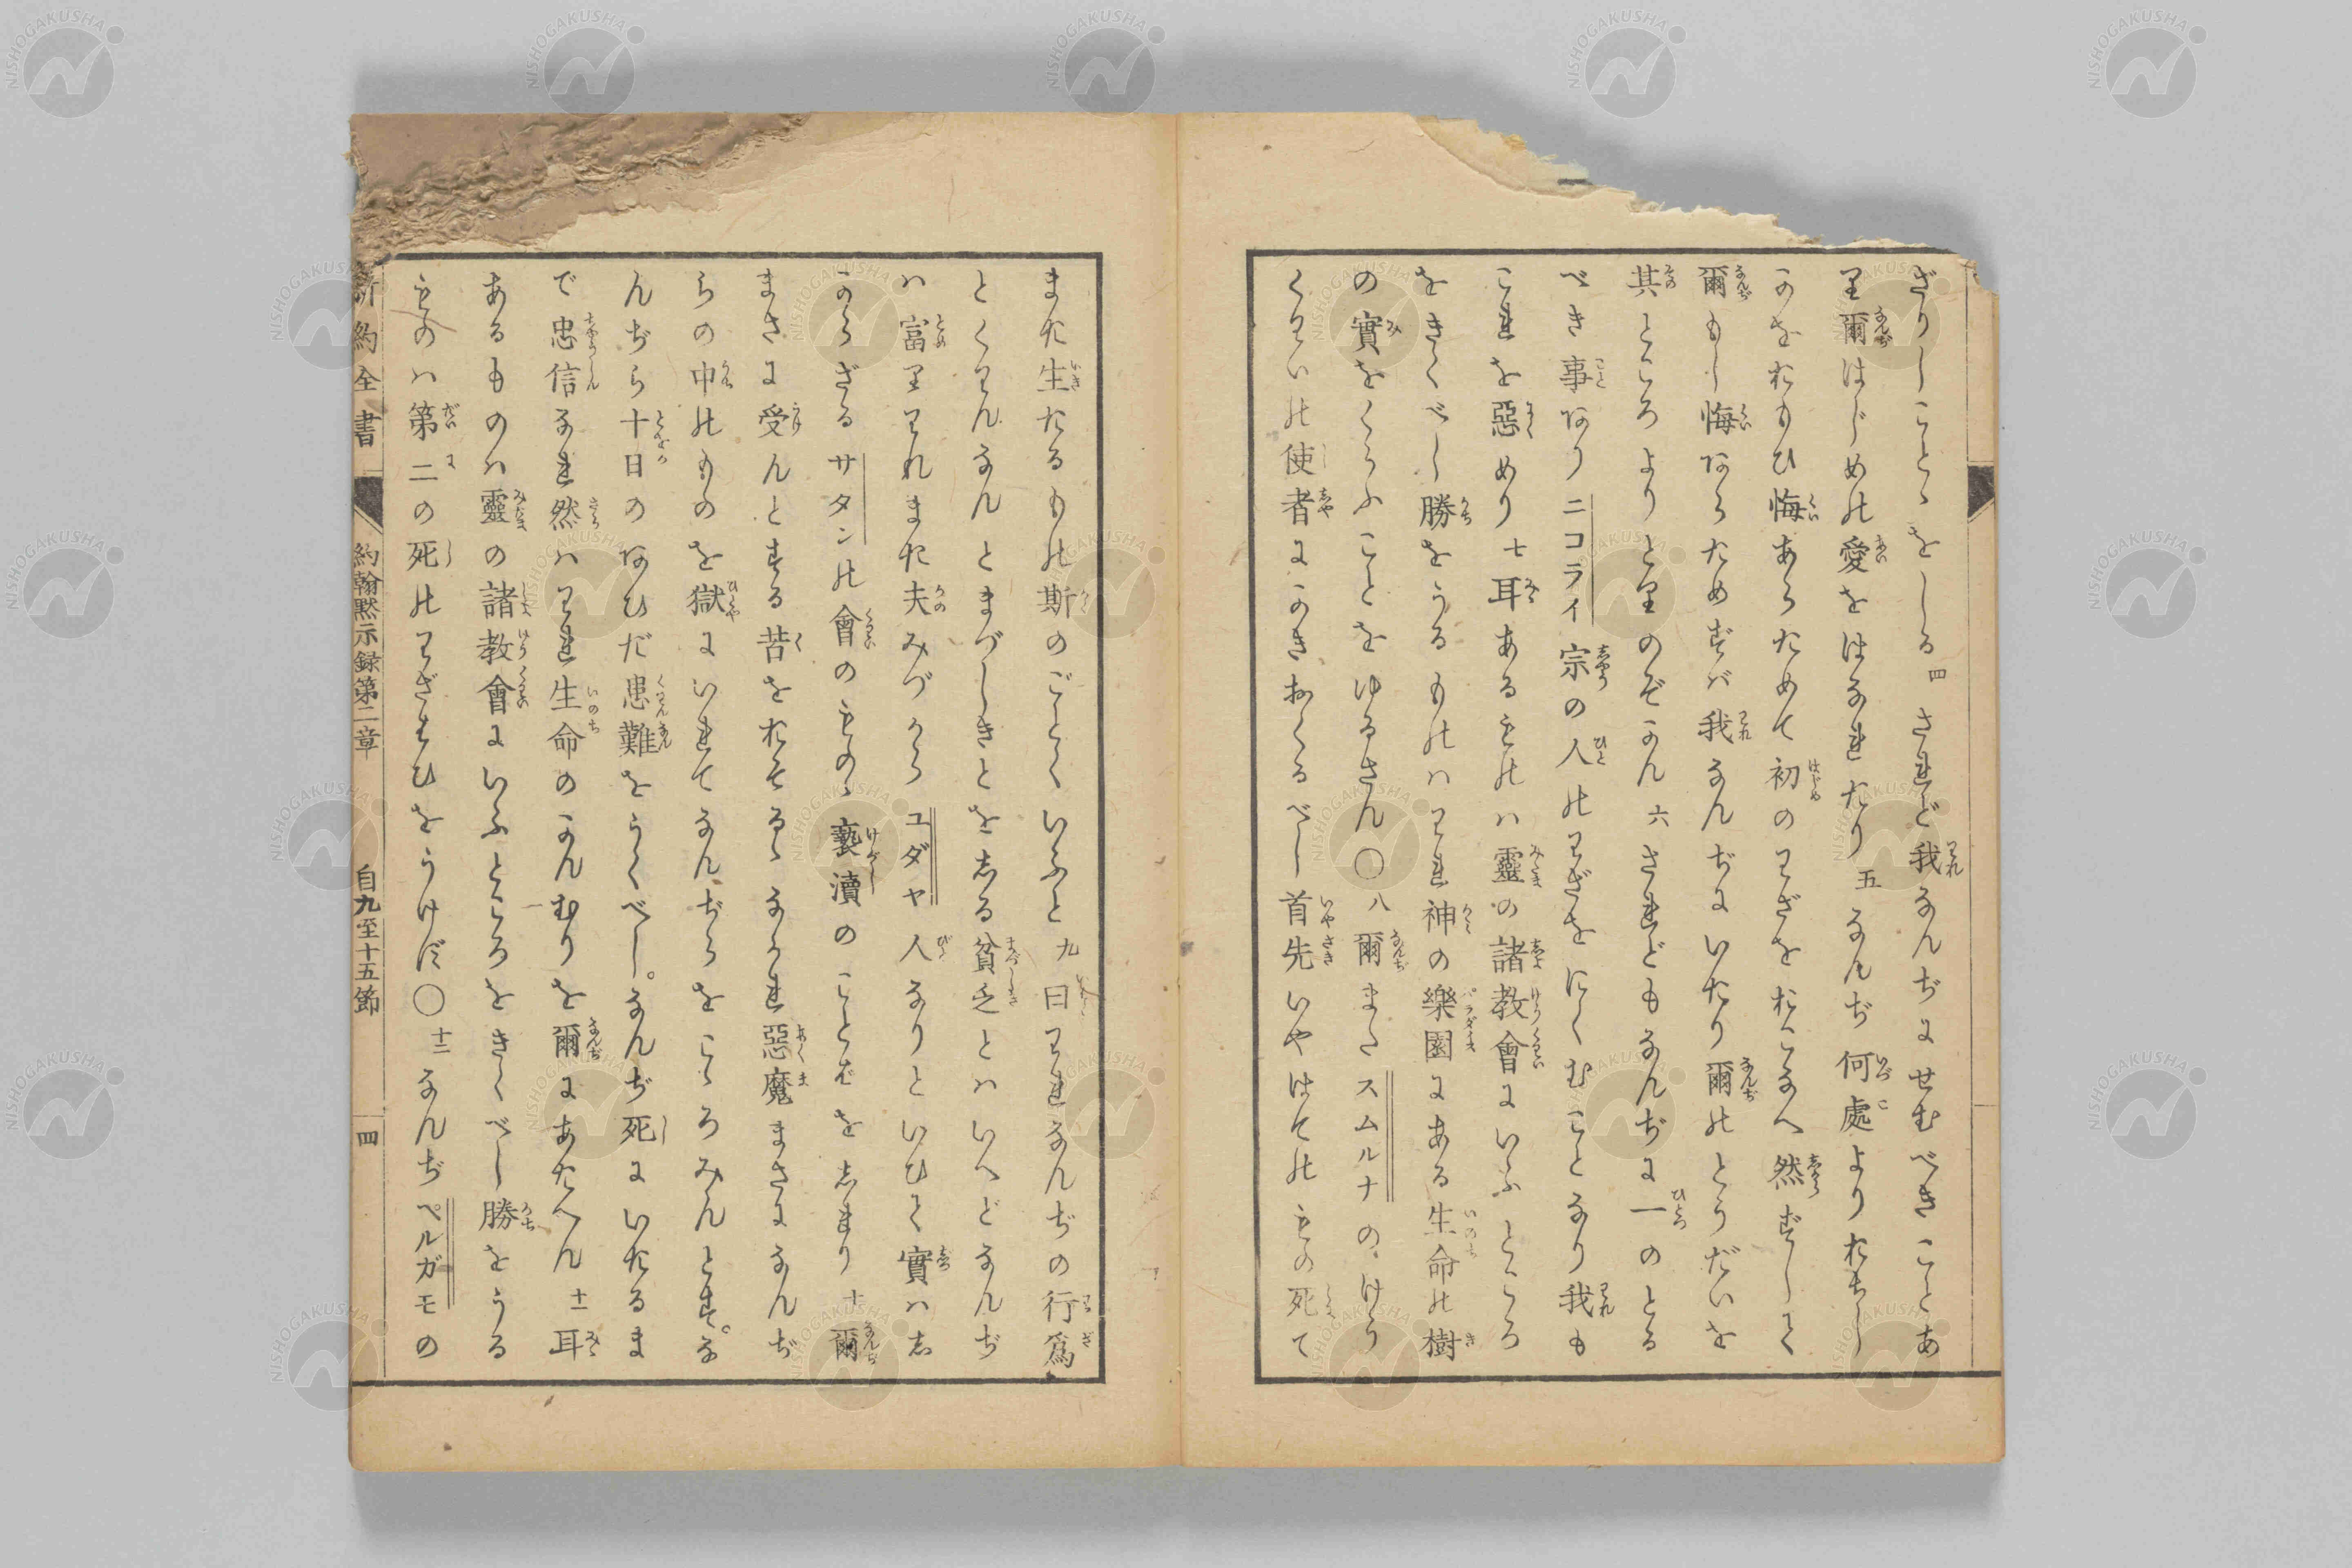 ざりしことゝをしる 四 されど我なんぢにせむべきことあ
り爾はじめの愛をはなれたり 五 なんぢ何處よりおちし
かをおもひ悔あらためて初のわざをおこなへ然ずして
爾もし悔あらためずバ我なんぢにいたり爾のとうだいを
其ところよりとりのぞかん 六 されどもなんぢに一のとる
べき事あり ニコライ宗の人のわざをにくむことなり我も
これを惡めり 七 耳あるものハ靈の諸教會にいふところ
をきくべし勝をうるものハわれ神の樂園にある生命の樹
の實をくらふことをゆるさん〇 八 爾またスムルナのけう
くわいの使者にかきおくるべし首先いやはてのもの死て
また生たるもの斯のごとくいふと 九 曰われなんぢの行爲
とくわんなんとまづしきとをしる貧乏とハいへどなんぢ
ハ富りわれまた夫みづからユダヤ人なりといひて實ハし
からざるサタンの會のものゝ褻瀆のことばをしまり 十 爾
まさに受んとする苦をおそるゝなかれ惡魔まさになんぢ
らの中のものを獄にいれてなんぢらをこゝろみんとす。な
んぢら十日のあひだ患難をうくべし。なんぢ死にいたるま
で忠信なれ然ハわれ生命のかんむりを爾にあたへん 十一 耳
あるものハ靈の諸教會にいふところをきくべし勝をうる
ものハ第二の死のわざはひをうけじ〇 十二 なんぢペルガモの
新約全書 約翰黙示録第二章 自九至十五節 四
NISHOGAKUSHA